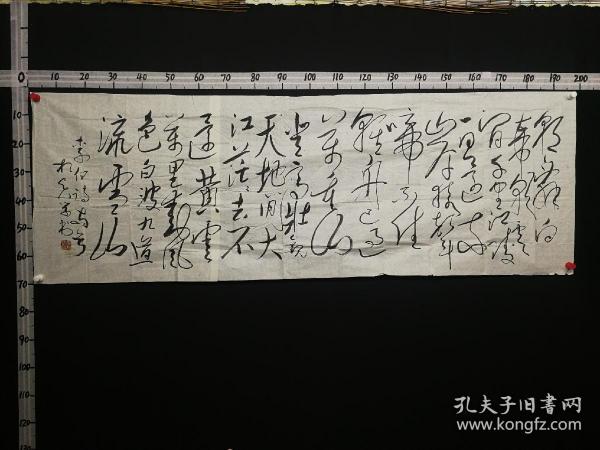 0 10 20 30 40 50 60 70 80 90 100 110 120 130 140 150 160 170 180 190 200
10
20
30
40
50
60
70
朝辭白
帝彩雲
間千里江陵
一日還兩
岸猿聲
啼不住
輕舟已過
萬重山
登高壯觀
天地間大
江茫茫去不
還黄雲
萬里動風
色白波九道
流雪山
李白詩兩首
孔夫子旧书网
www.kongfz.com